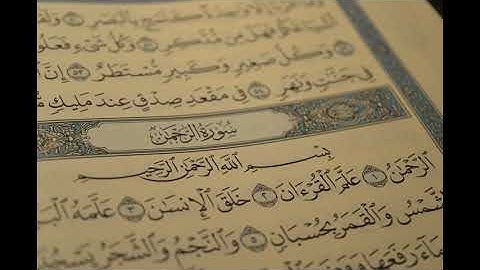 أَشْيَاعَكُمْ فَهَلْ مِن مُّدَّكِرٍ ۝٥١ وَكُلُّ شَىْءٍ فَعَلُو
وَكُلُّ صَغِيرٍ وَكَبِيرٍ مُّسْتَطَرٌ ۝٥٣ إِنَّ
فِى جَنَّٰتٍ وَنَهَرٍ ۝٥٤ فِى مَقْعَدِ صِدْقٍ عِندَ مَلِيكٍ
سُورَةُ الرَّحْمَٰن
بِسْمِ ٱللَّهِ ٱلرَّحْمَٰنِ ٱلرَّحِيمِ
ٱلرَّحْمَٰنُ ۝١ عَلَّمَ ٱلْقُرْءَانَ ۝٢ خَلَقَ ٱلْإِنسَٰنَ ۝٣ عَلَّمَهُ ٱلْبَ
ٱلشَّمْسُ وَٱلْقَمَرُ بِحُسْبَانٍ ۝٥ وَٱلنَّجْمُ وَٱلشَّجَرُ يَسْجُدَ
مَآءَ رَفَعَهَا